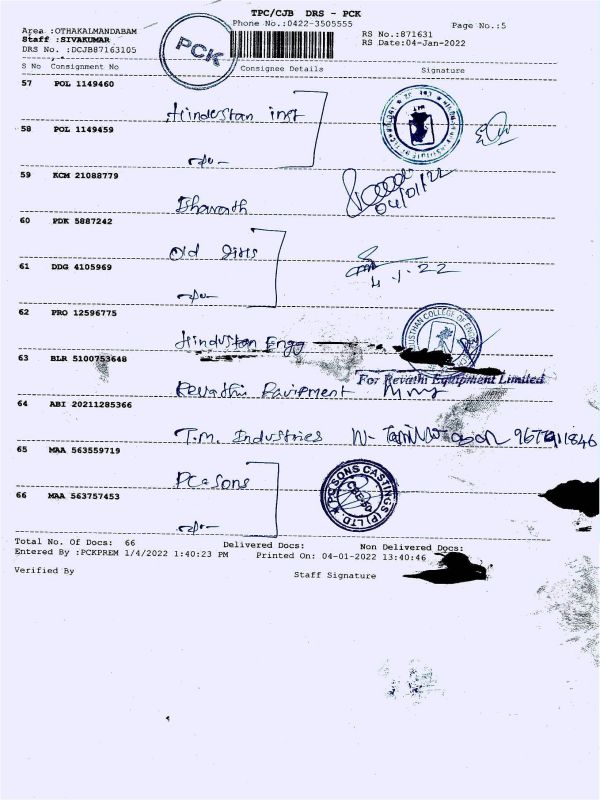 TPC/CJB DRS - PCK
Phone No.:0422-3505555
Page No.:5
Area :OTHAKALMANDABAM
Staff :SIVAKUMAR
DRS No. :DCJB87163105
PCK
RS No.:871631
RS Date:04-Jan-2022
S No Consignment No Consignee Details Signature
57 POL 1149460
Hindustan inst
58 POL 1149459
-do-
59 KCM 21088779
04/01/22
60 PDK 5887242
Old
61 DDG 4105969
-do-
4.1.22
62 PRO 12596775
Hindustan Engg
63 BLR 5100753648
For Revathi Equipment Limited
Revathi
64 ABI 20211285366
T.M. Industries
65 MAA 563559719
PC & Sons
PC SONS CASTINGS (P) LTD
66 MAA 563757453
-do-
Total No. Of Docs: 66 Delivered Docs: Non Delivered Docs:
Entered By :PCKPREM 1/4/2022 1:40:23 PM Printed On: 04-01-2022 13:40:46
Verified By Staff Signature